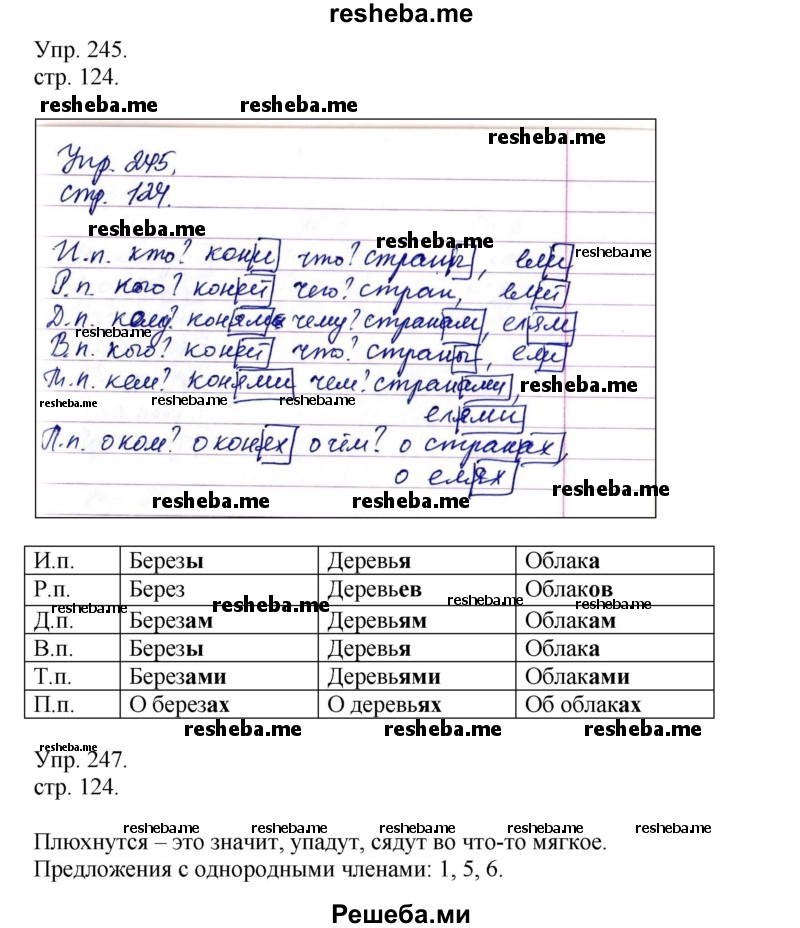 resheba.me
Упр. 245.
стр. 124.
resheba.me resheba.me
resheba.me
Упр. 245,
стр. 124.
resheba.me
resheba.me
resheba.me
И.п. кто? кони что? страны, ели
Р.п. кого? коней чего? стран, елей
Д.п. кому? коням чему? странам, елям
resheba.me
В.п. кого? коней что? страны, ели
Т.п. кем? конями чем? странами,
resheba.me
resheba.me resheba.me resheba.me
елями
П.п. о ком? о конех о чём? о странах,
о елях
resheba.me
resheba.me resheba.me
И.п. Березы Деревья Облака
Р.п. Берез Деревьев Облаков
resheba.me resheba.me resheba.me resheba.me
Д.п. Березам Деревьям Облакам
В.п. Березы Деревья Облака
Т.п. Березами Деревьями Облаками
П.п. О березах О деревьях Об облаках
resheba.me resheba.me resheba.me
resheba.me
Упр. 247.
стр. 124.
resheba.me resheba.me resheba.me resheba.me resheba.me
Плюхнутся – это значит, упадут, сядут во что-то мягкое.
Предложения с однородными членами: 1, 5, 6.
Решеба.ми